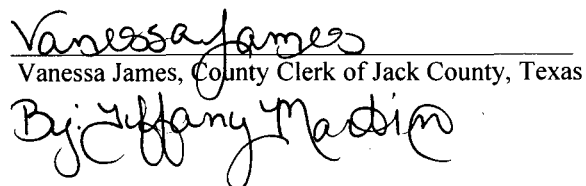 Vanessa James
Vanessa James, County Clerk of Jack County, Texas
By: Tiffany Martin